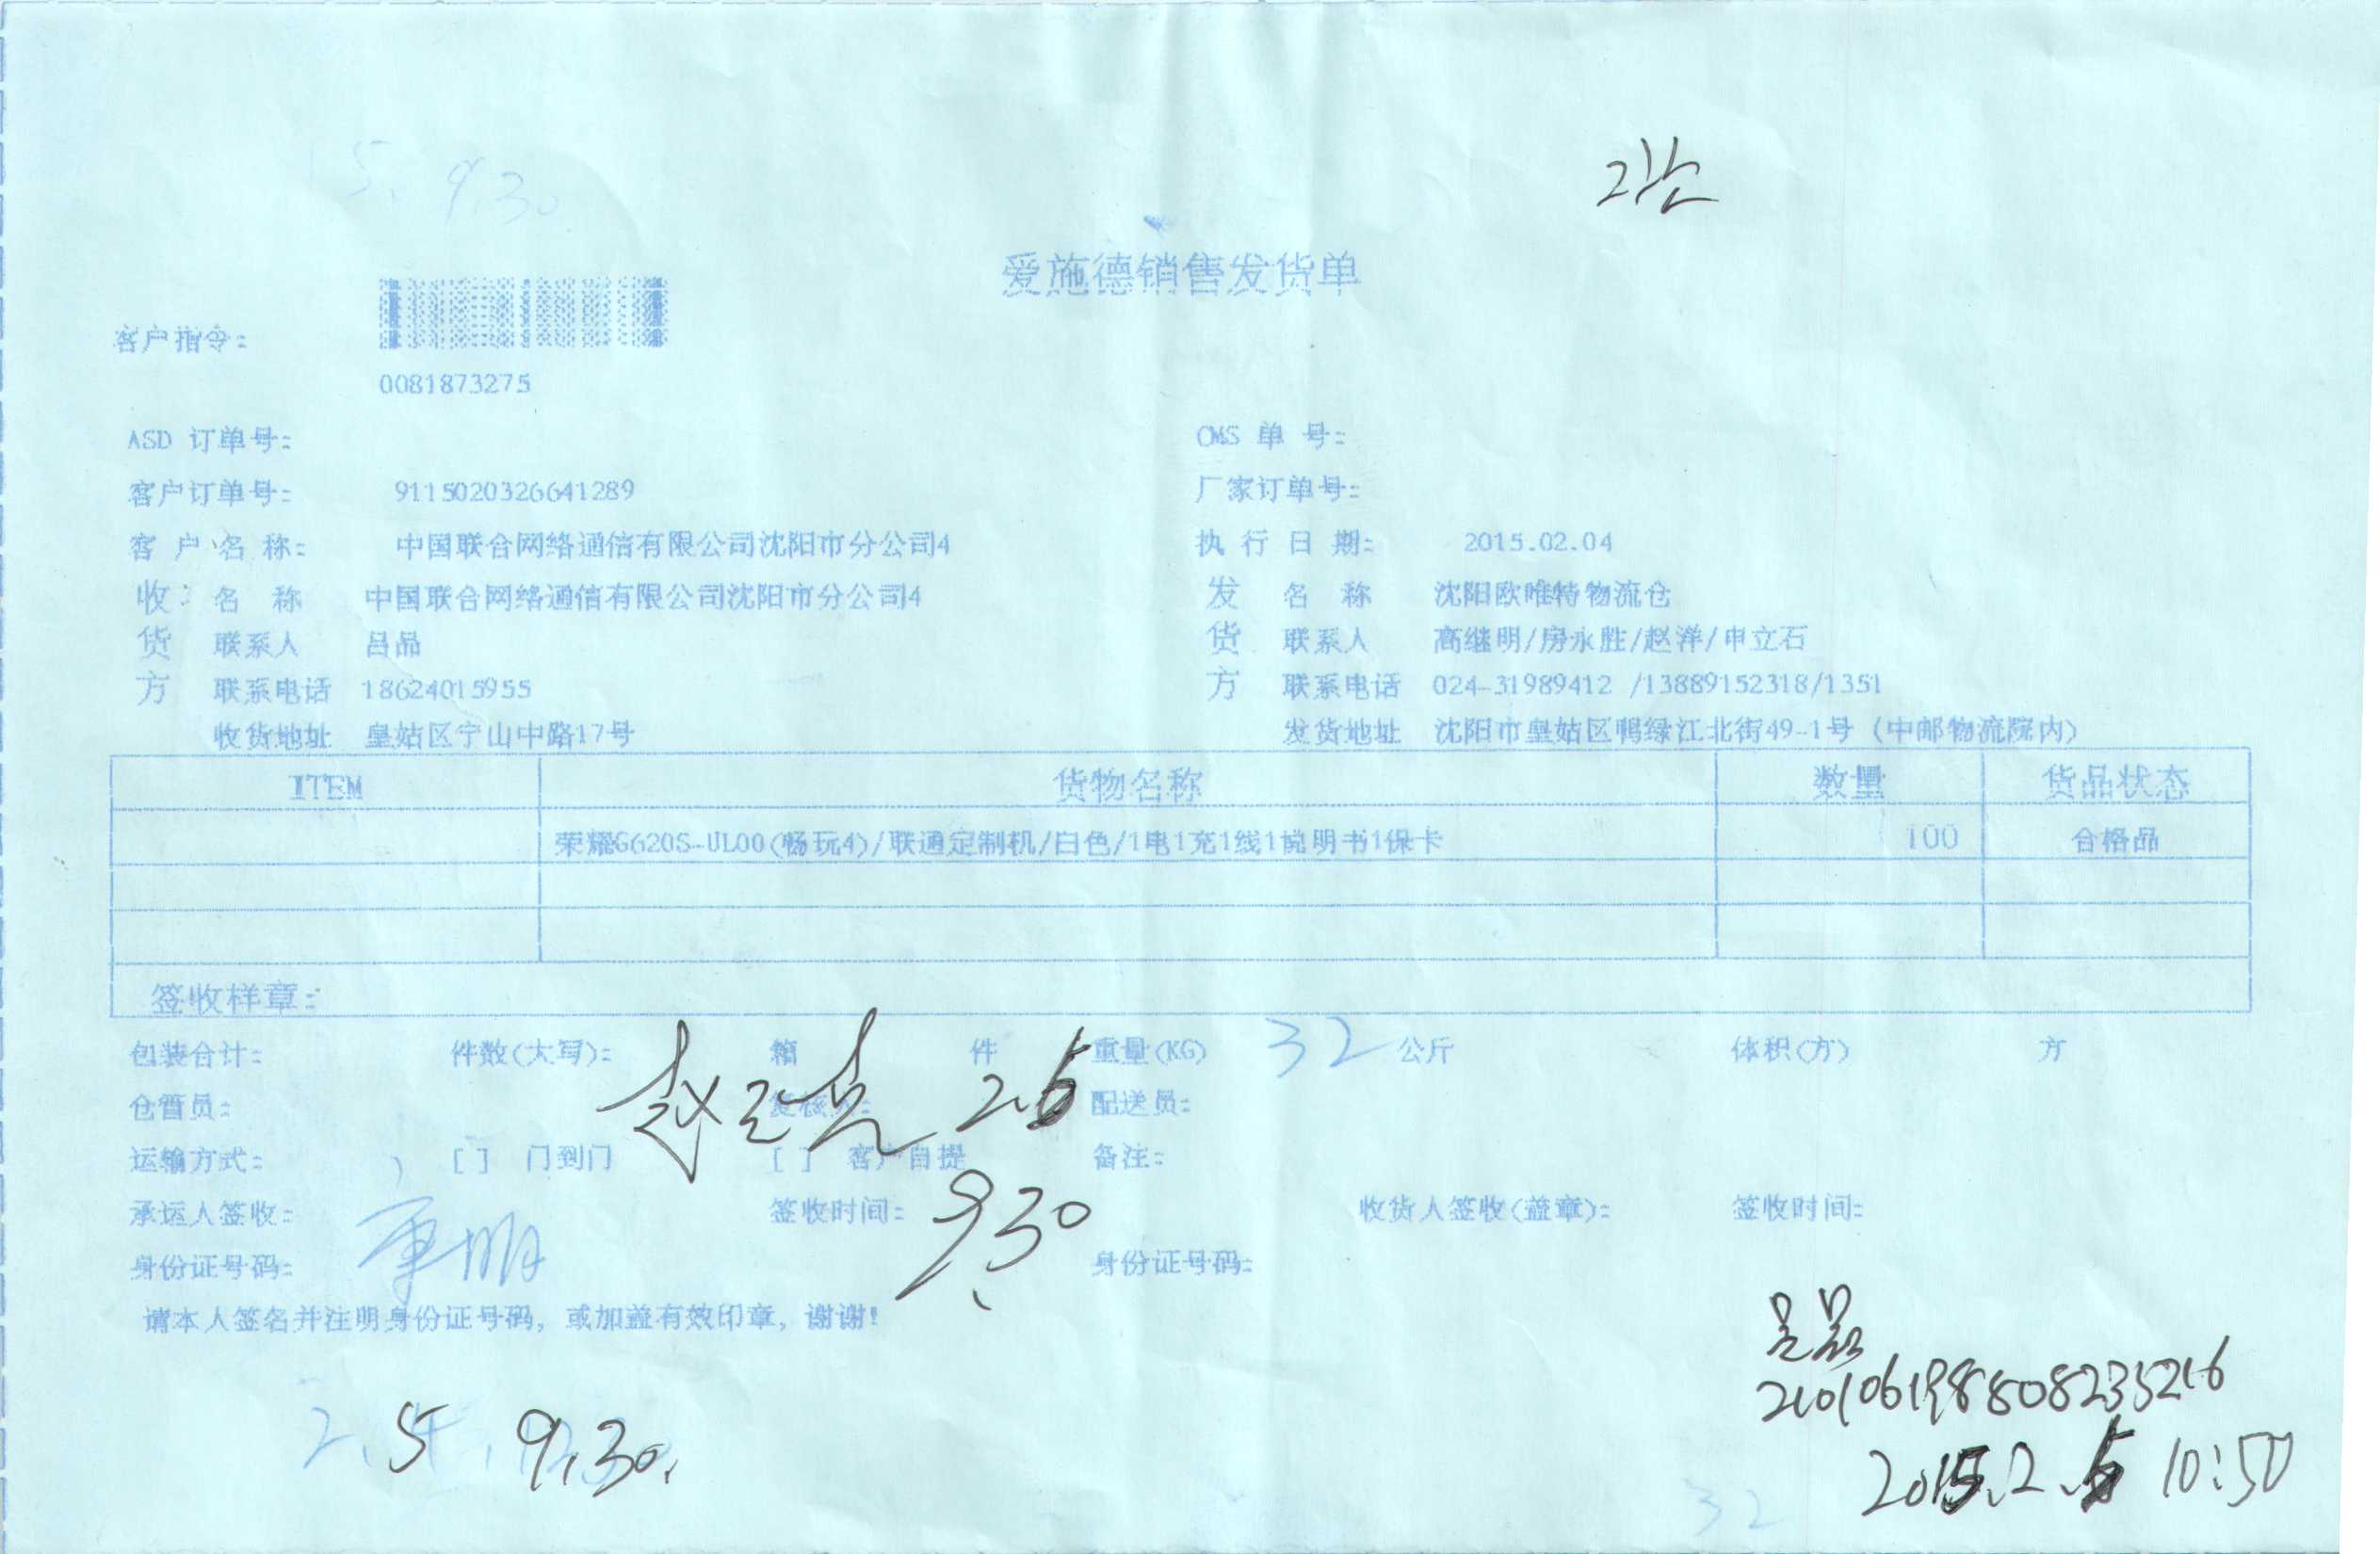 5. 9.30
爱施德销售发货单
客户指令:
0081873275
ASD 订单号: CMS 单 号:
客户订单号: 9115020326641289 厂家订单号:
客 户 名 称: 中国联合网络通信有限公司沈阳市分公司4 执 行 日 期: 2015.02.04
收 名 称 中国联合网络通信有限公司沈阳市分公司4 发 名 称 沈阳欧唯特物流仓
货 联系人 吕品 货 联系人 高继明/房永胜/赵洋/申立石
方 联系电话 18624015955 方 联系电话 024-31989412 /13889152318/1351
收货地址 皇姑区宁山中路17号 发货地址 沈阳市皇姑区鸭绿江北街49-1号 (中邮物流院内)
ITEM 货物名称 数量 货品状态
荣耀G620S-UL00(畅玩4)/联通定制机/白色/1电1充1线1说明书1保卡 100 合格品
签收样章:
包装合计: 件数(大写): 箱 件 重量(KG) 32 公斤 体积(方) 方
仓管员: 复核员: 2.5 配送员:
运输方式: [ ] 门到门 [ ] 客户自提 备注:
承运人签收: 签收时间: 9.30 收货人签收(盖章): 签收时间:
身份证号码: 身份证号码:
请本人签名并注明身份证号码, 或加盖有效印章, 谢谢!
吕品
210106198808235216
2.5 9.30.
2015.2.5 10:50
32